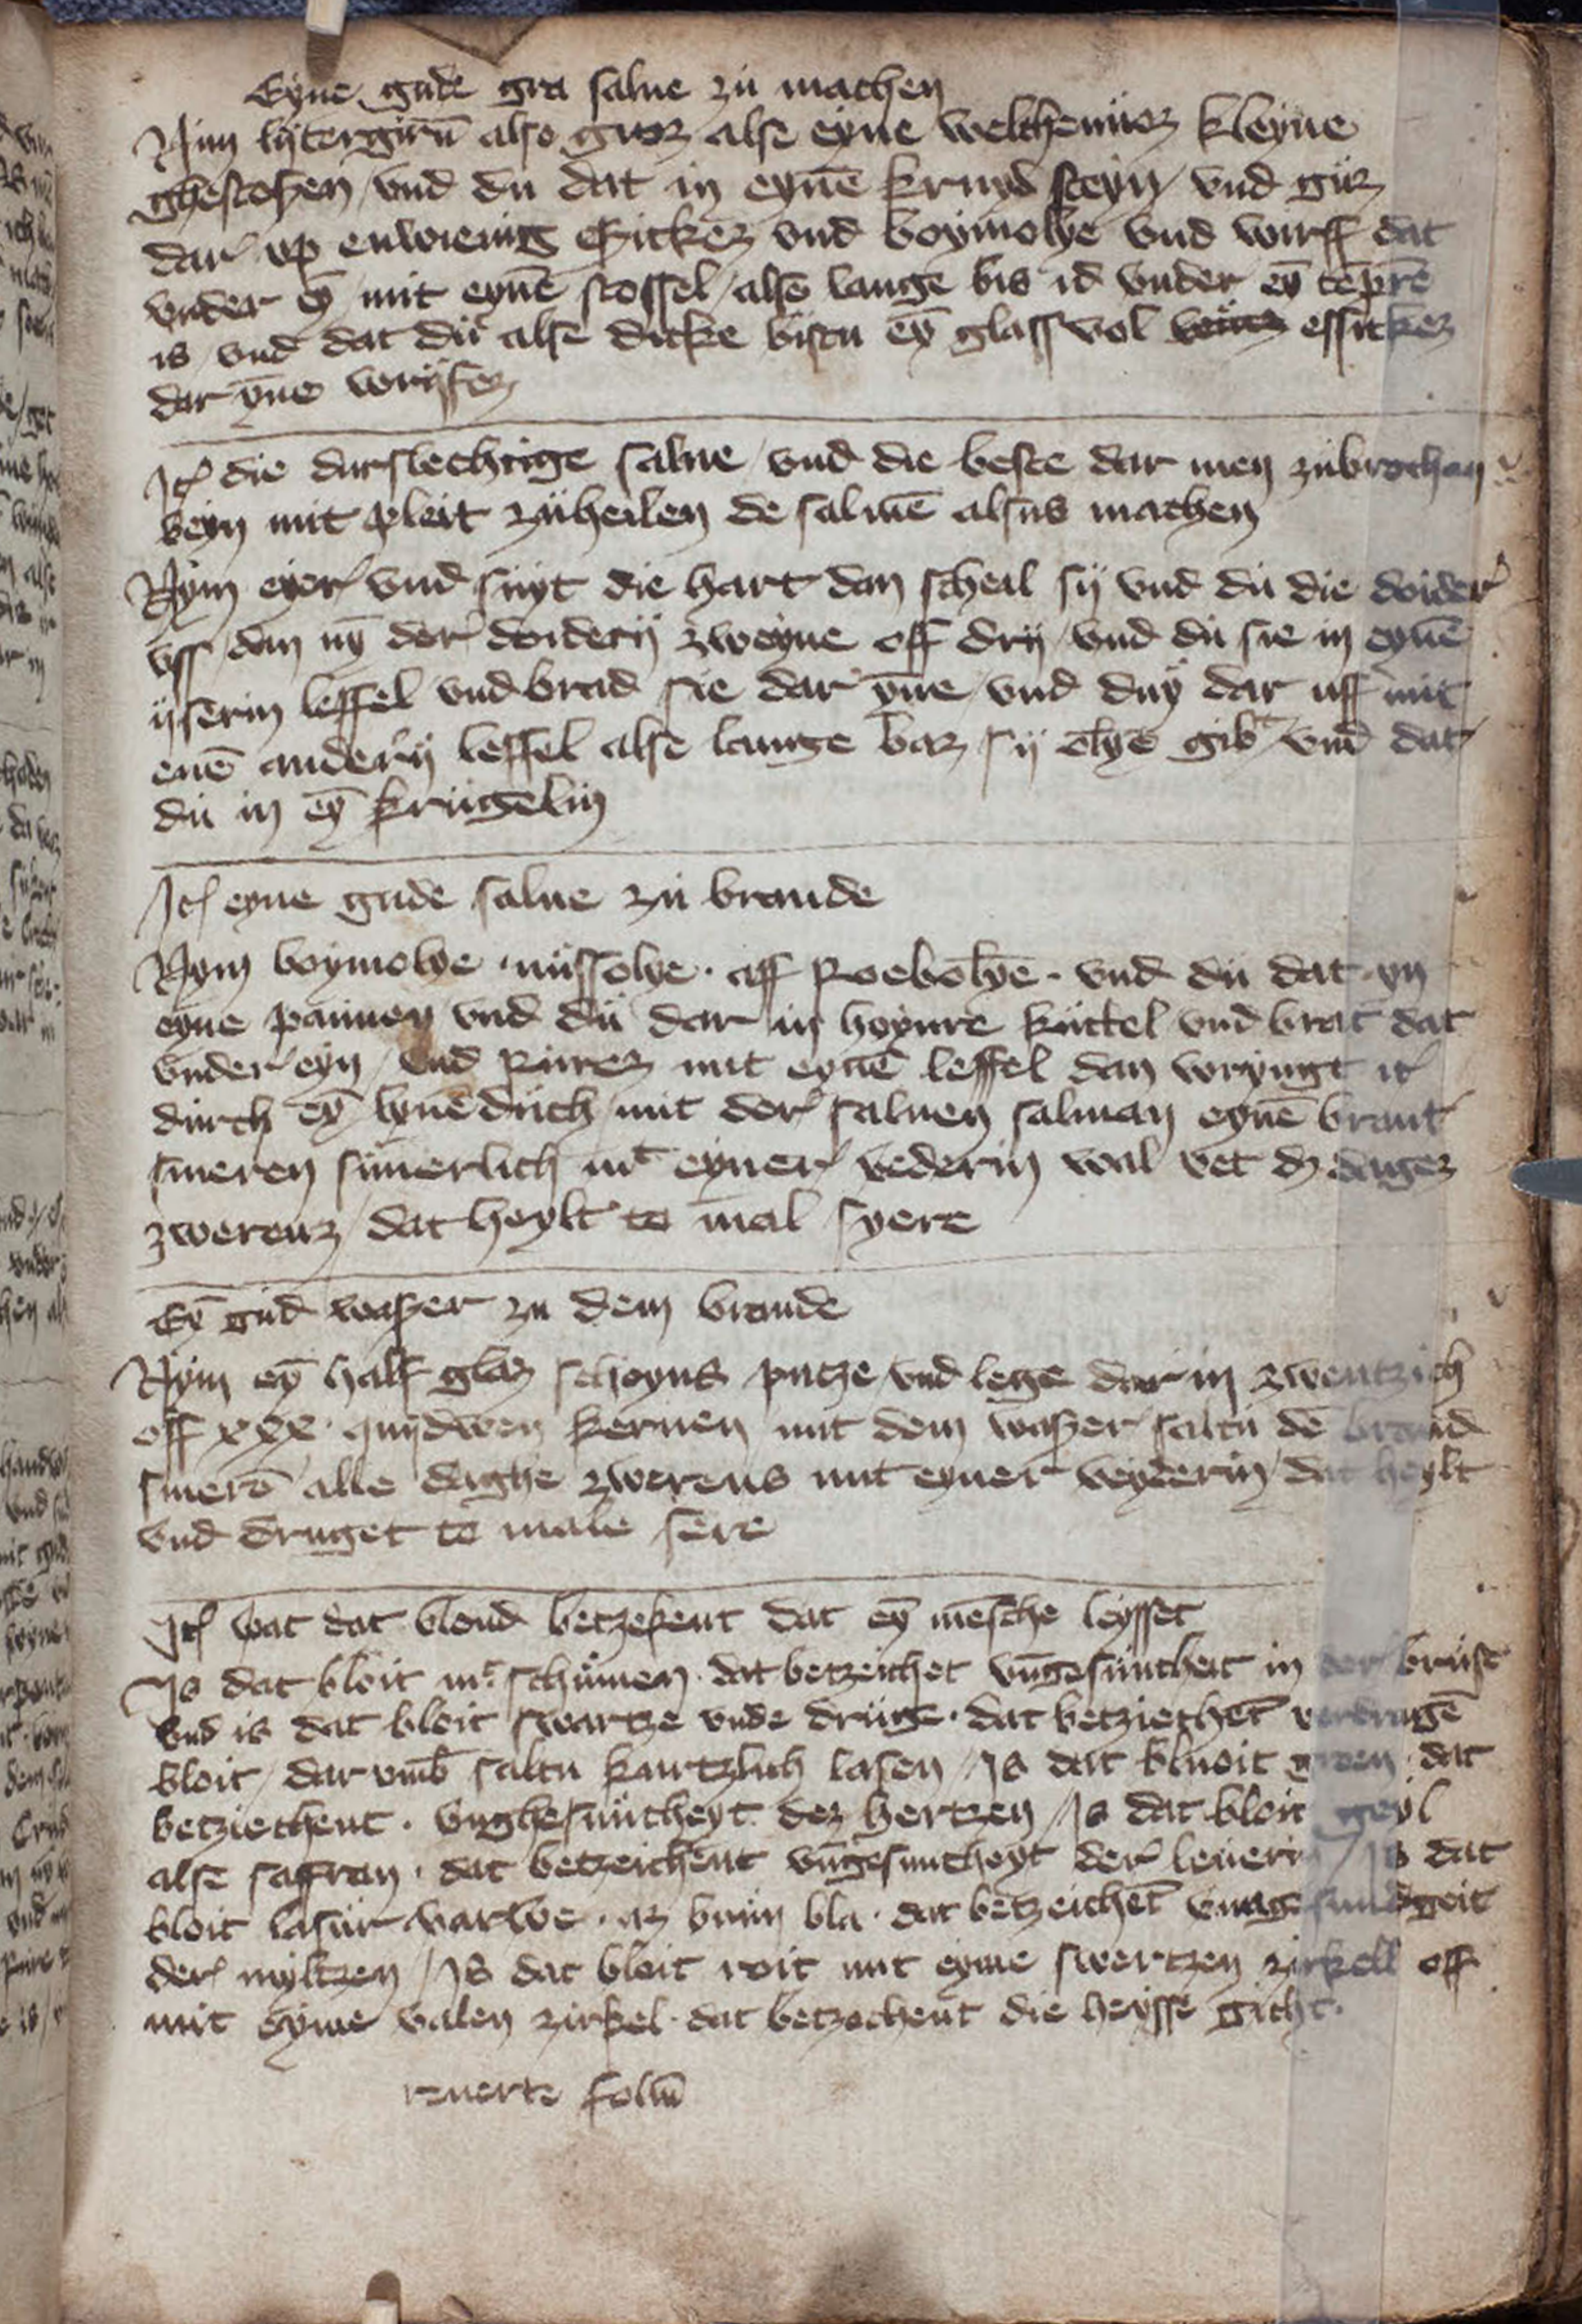 Eyne gude gra salue zu machen
Nym lijtergirū also groz alse eyne welchenuoz kleyne
ghestoßen / vnd du dat in eynē kruyd steyn / vnd giüz
dar vp enwienig eßickez vnd boymolye vnd wirff dat
vnder eȳ mit eynē stossel / alsē lange bis id vnder eȳ tēprē
is / vnd dat du alse dicke bistu eȳ glass vol essickez
dar ȳne
Itē die durslechtige salue / vnd die beste dar men zubrochan
beyn mit pleit zuheilen de saluē alsus machen
Nym eyer vnd suyt die hart dan scheil sij vnd du die doider
vss / dan nȳ der doiderij zweyne off drij / vnd du sie in eynē
ijserin leffel vnd brad sie dar ȳne / vnd duy dar uff mit
enē anderij leffel alse lange baz sij olye gibt vnd dat
du in eȳ krugelin
Itē eyne gude salue zu brande
Nym boymolye · nussolye · aff Roebolye · vnd du dat yn
eyne pannen vnd du dar in hoynre kuttel vnd brat dat
vnder eyn / vnd rurez mit eynē leffel dan wryngt it
durch eȳ lynē duch / mit der saluen salman eynē brant
smeren suuerlich mt eyner vederin wal vet dz dagez
zwerenz / dat heylt to mal syere
Eȳ gud waßer zu dem brande
Nym eȳ half glaz schoyns putze / vnd lege dar in zwentzich
off xxx · quydwen kernen mit dem waßer saltu dē brand
smerē alle daghe zwerens mit eyner veyderin / dat heylt
vnd druget to male sere
Itē wat dat bloud betzekent dat eȳ mēsche leysset
Is dat bloit mt schumen · dat betzeichet vngesuntheit in der brust
vnd is dat bloit swartze vnde druge · dat betziechēt verdrugē
bloit / dar vmb saltu kurtzlich lasen / Is dat bluoit dat
betziechent · vnghesuntheyt dez hertzen / Is dat bloit geyl
alse saffran · dat betzeichent vngesuntheyt der leuerin / Is dat
bloit lasur varwe · az brun bla · dat betzeichēt vnngesundgeit
der myltzen / Is dat bloit roit mit eyme swertzen zirkell off
mit eyme valen zirkel · dat betzechent die heysse gicht ·
reuerte foliū